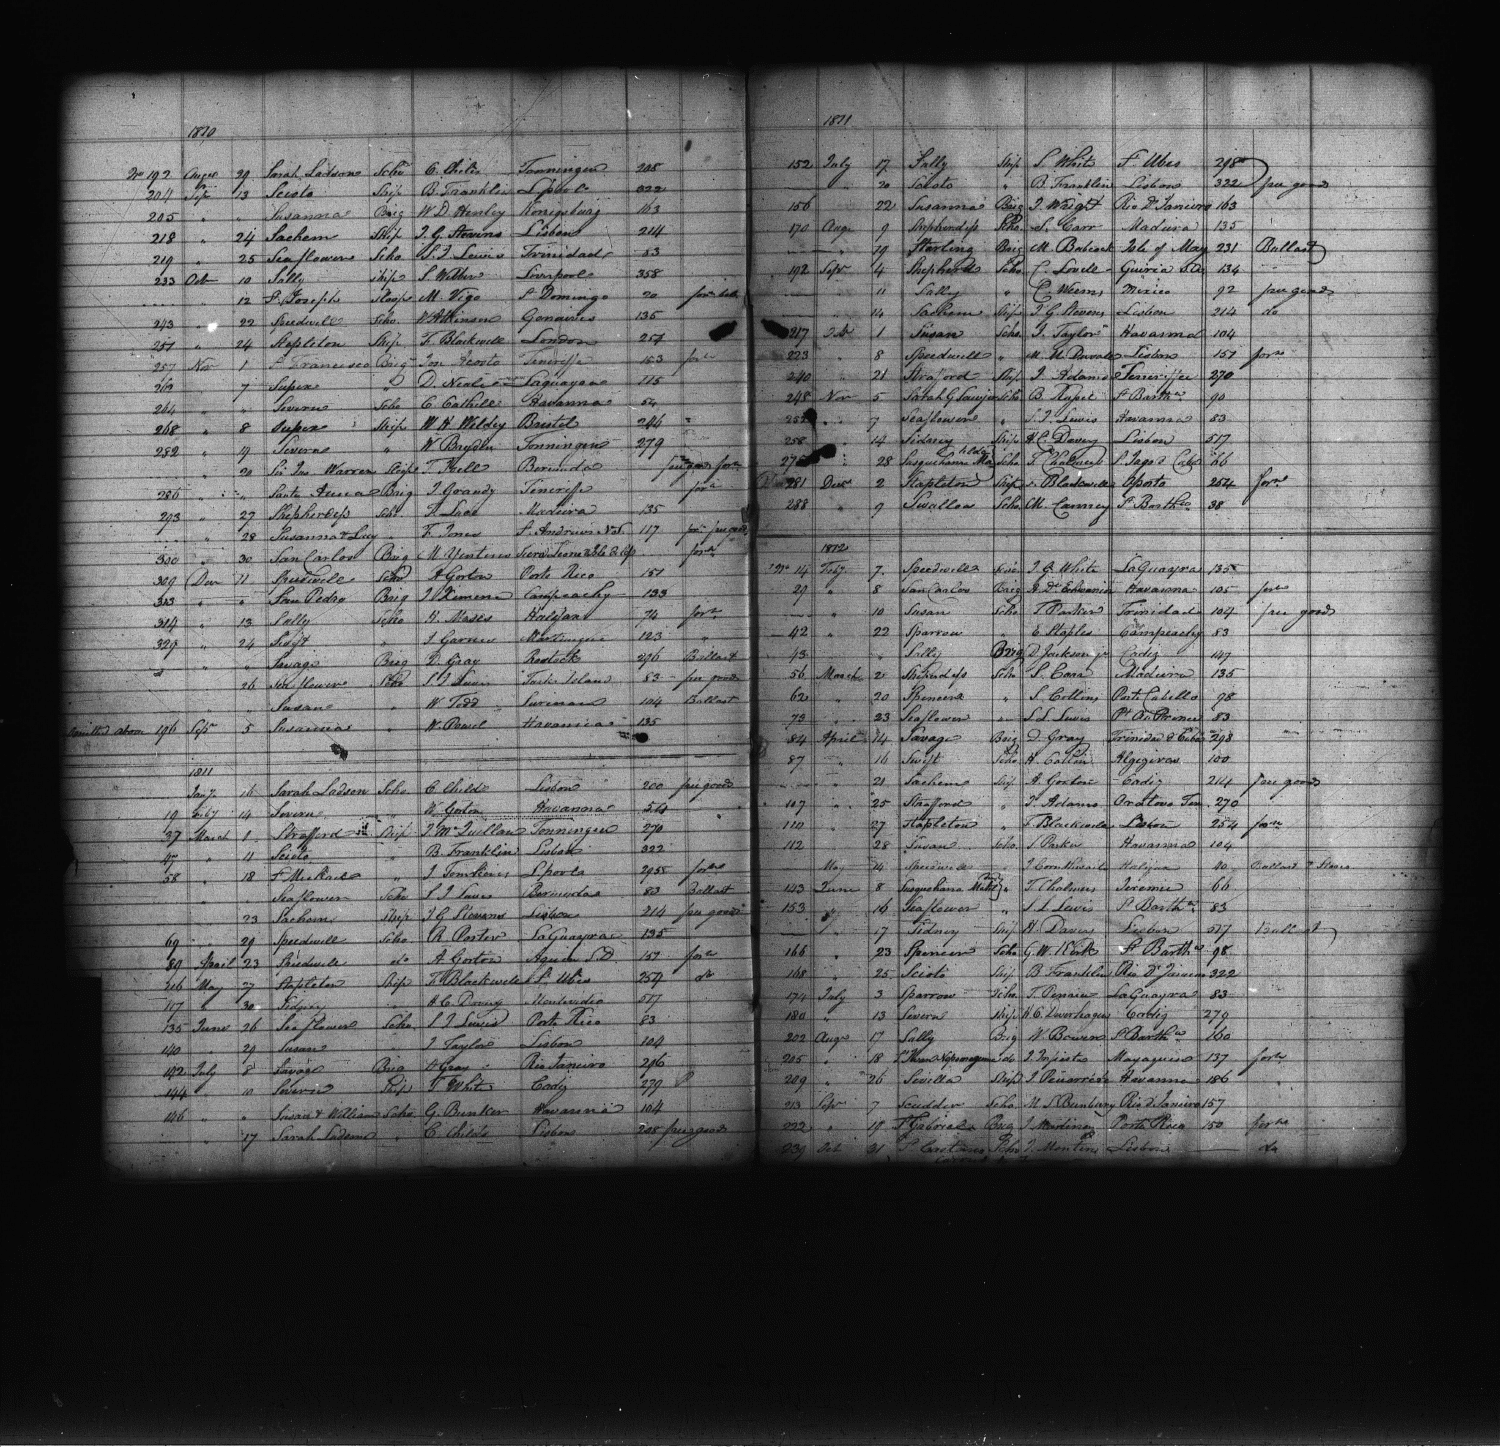 1810
No 192 Augt 29 Sarah Ladson Scho C. Childs Tonningen 208
204 Sep 13 Scioto Ship B. Franklin Lpool 322
205 " " Susanna Brig W. D. Henley Konigsburg 163
218 " 24 Sachem Ship J. G. Stevens Lisbon 214
219 " 25 Seaflower Scho. S. J. Lewis Trinidad 83
233 Oct 10 Sally Ship S. Liverpool 358
12 St Joseph Sloop M. Vigo St Domingo 20
243 22 Speedwell Scho. W Atkinson Gonaives 135
251 " 24 Stapleton Ship T. Blackwell London 254
257 Nov 1 St Francisco Brig Teneriffe 153 forn
262 7 Super " D. Laguayra 115
264 " " Severn Scho C Cathell Havanna 54
268 " 8 Super Ship W H Wildey Bristol 246
282 " 19 Severn " W Tonningen 279
" 20 Sir Jno Warren Ship T. Kell Bermuda free goods forn
286 " " Santa Anna Brig J Grandy Teneriffe forn
293 " 27 Shepherdess Scho Madeira 135
28 Susanna & Lucy F. Jones St Andrews N.S. 117
300 " 30 San Carlos Brig M. Sierra Leone forn
309 Decr 11 Speedwell Scho A Gorton Porto Rico 151
313 " " San Pedro Brig Campeachy 133
314 " 13 Sally Scho H. Moses Halifax 74 forn
329 " 24 Swift " J Garner Martinique 123 "
" " Savage Brig D. Gray Rostock 296 Ballast
26 Seaflower Scho S J Lewis Turks Island 83 free goods
Susan " W Todd Surinam 104 Ballast
omitted above 196 Sepr 5 Susanna " W. Powel Havanna 135
1811
Jany 16 Sarah Ladson Scho. C Childs Lisbon 200 free goods
19 Feby 14 Severn W. Gorton Havanna 54
37 March 1 Strafford Ship J McQuillan Tonningen 270
47 " 11 Scioto " B. Franklin Lisbon 322
58 " 18 St Michael " J Tomkins Lpool 295 forn
" Seaflower Scho S J Lewis Bermuda 83 Ballast
23 Sachem Ship J. G Stevens Lisbon 214 free goods
69 29 Speedwell Scho R. Porter LaGuayra 135
89 April 23 Speedwell do A. Gorton S.D 151 forn
May 27 Stapleton Ship T. Blackwell St Ubes 254 do
117 30 Sidney " H C Davey Montevideo 517
135 June 26 Seaflower Scho. S J Lewis Porto Rico 83
140 " 29 Susan " J Taylor Lisbon 104
142 July 8 Savage Brig D Gray Rio Janeiro 296
144 " 10 Severn Ship J White Cadiz 279
146 " " Susan & William Scho. G. Bunker Havanna 104
" 17 Sarah Ladson " C Childs Lisbon 208 free goods
1811
152 July 17 Sally Ship S. White St Ubes 298
" 20 Scioto " B. Franklin Lisbon 322 free goods
156 22 Susanna Brig J. Wright Rio D Janeiro 163
170 Augt 9 Shepherdess Scho. S. Carr Madeira 135
" 19 Sterling Brig M. Babcock Isle of May 231 Ballast
192 Sepr 4 Shepherd Scho C. Lovell Guiria S.D. 134
11 Sally " C Weems Mexico 92 free goods
" 14 Sachem Ship J G. Stevens Lisbon 214 do
217 Oct 1 Susan Scho. J. Taylor Havanna 104
223 " 8 Speedwell " Lisbon 151 forn
240 " 21 Strafford Ship J Adams Teneriffe 270
248 Nov 5 Sarah G Scho B. St Barths 90
" 7 Seaflower " S. J. Lewis Havanna 83
258 " 14 Sidney Ship H C Davey Lisbon 517
" 28 Susquehanna Scho T. Chalmers 66
281 Decr 2 Stapleton Ship T. Blackwell Oporto 254 forn
288 " 9 Swallow Scho. M. Canney St Barths 38
1812
No 14 Feby 7 Speedwell Scho J. B. White LaGuayra 135
29 " 8 San Carlos Brig Havanna 105 forn
" 10 Susan Scho T. Parker Trinidad 104 free goods
42 " 22 Sparrow E. Staples Campeachy 83
43 " Sally Brig D. Jackson jr Cadiz 147
56 March 2 Shepherdess Scho S. Carr Madeira 135
62 " 20 Spencer " S. Collins Port Cabello 98
73 " 23 Seaflower " S. J. Lewis Pt Au Prince 83
84 April 14 Savage Brig D Gray Trinidad d Cuba 298
87 " 16 Swift Scho Algeziras 100
" 21 Sachem Ship A Gorton Cadiz 214 free goods
107 " 25 Strafford " J Adams Oratava Ten. 270
110 " 27 Stapleton " T Blackwell Lisbon 254 forn
112 28 Susan Scho. T Parker Havanna 104
May 14 Speedwell J Cornthwait Halifax 40 Ballast & Stores
143 June 8 Susquehana " T. Chalmers Jeremie 66
153 " 16 Seaflower " S. J. Lewis St Barths 83
" 17 Sidney Ship H Davey Lisbon 517 Ballast
166 " 23 Spencer Scho. G. W. St Barths 98
168 " 25 Scioto Ship B. Franklin Rio D Janeiro 322
174 July 3 Sparrow Scho. T. LaGuayra 83
180 " 13 Severn Ship Cadiz 279
202 Augt 17 Sally Brig W. Bowen St Barths 160
205 " 18 Mayaguez 137 forn
209 " 26 Sevilla Ship Havanna 186 "
213 Sepr 7 Scudder Scho M. S Bunbury Rio d Janeiro 157
222 " 19 St Gabriela Brig J Martinez Porto Rico 150 forn
239 Oct 31 Scho Lisbon do